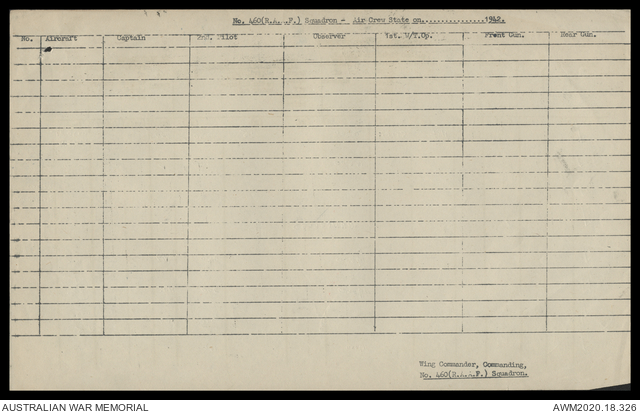 No. 460(R.A.A.F.) Squadron - Air Crew State on................1942.
No. Aircraft Captain 2nd. Pilot Observer 1st. W/T.Op. Front Gun. Rear Gun.
Wing Commander, Commanding,
No. 460(R.A.A.F.) Squadron.
AUSTRALIAN WAR MEMORIAL AWM2020.18.326